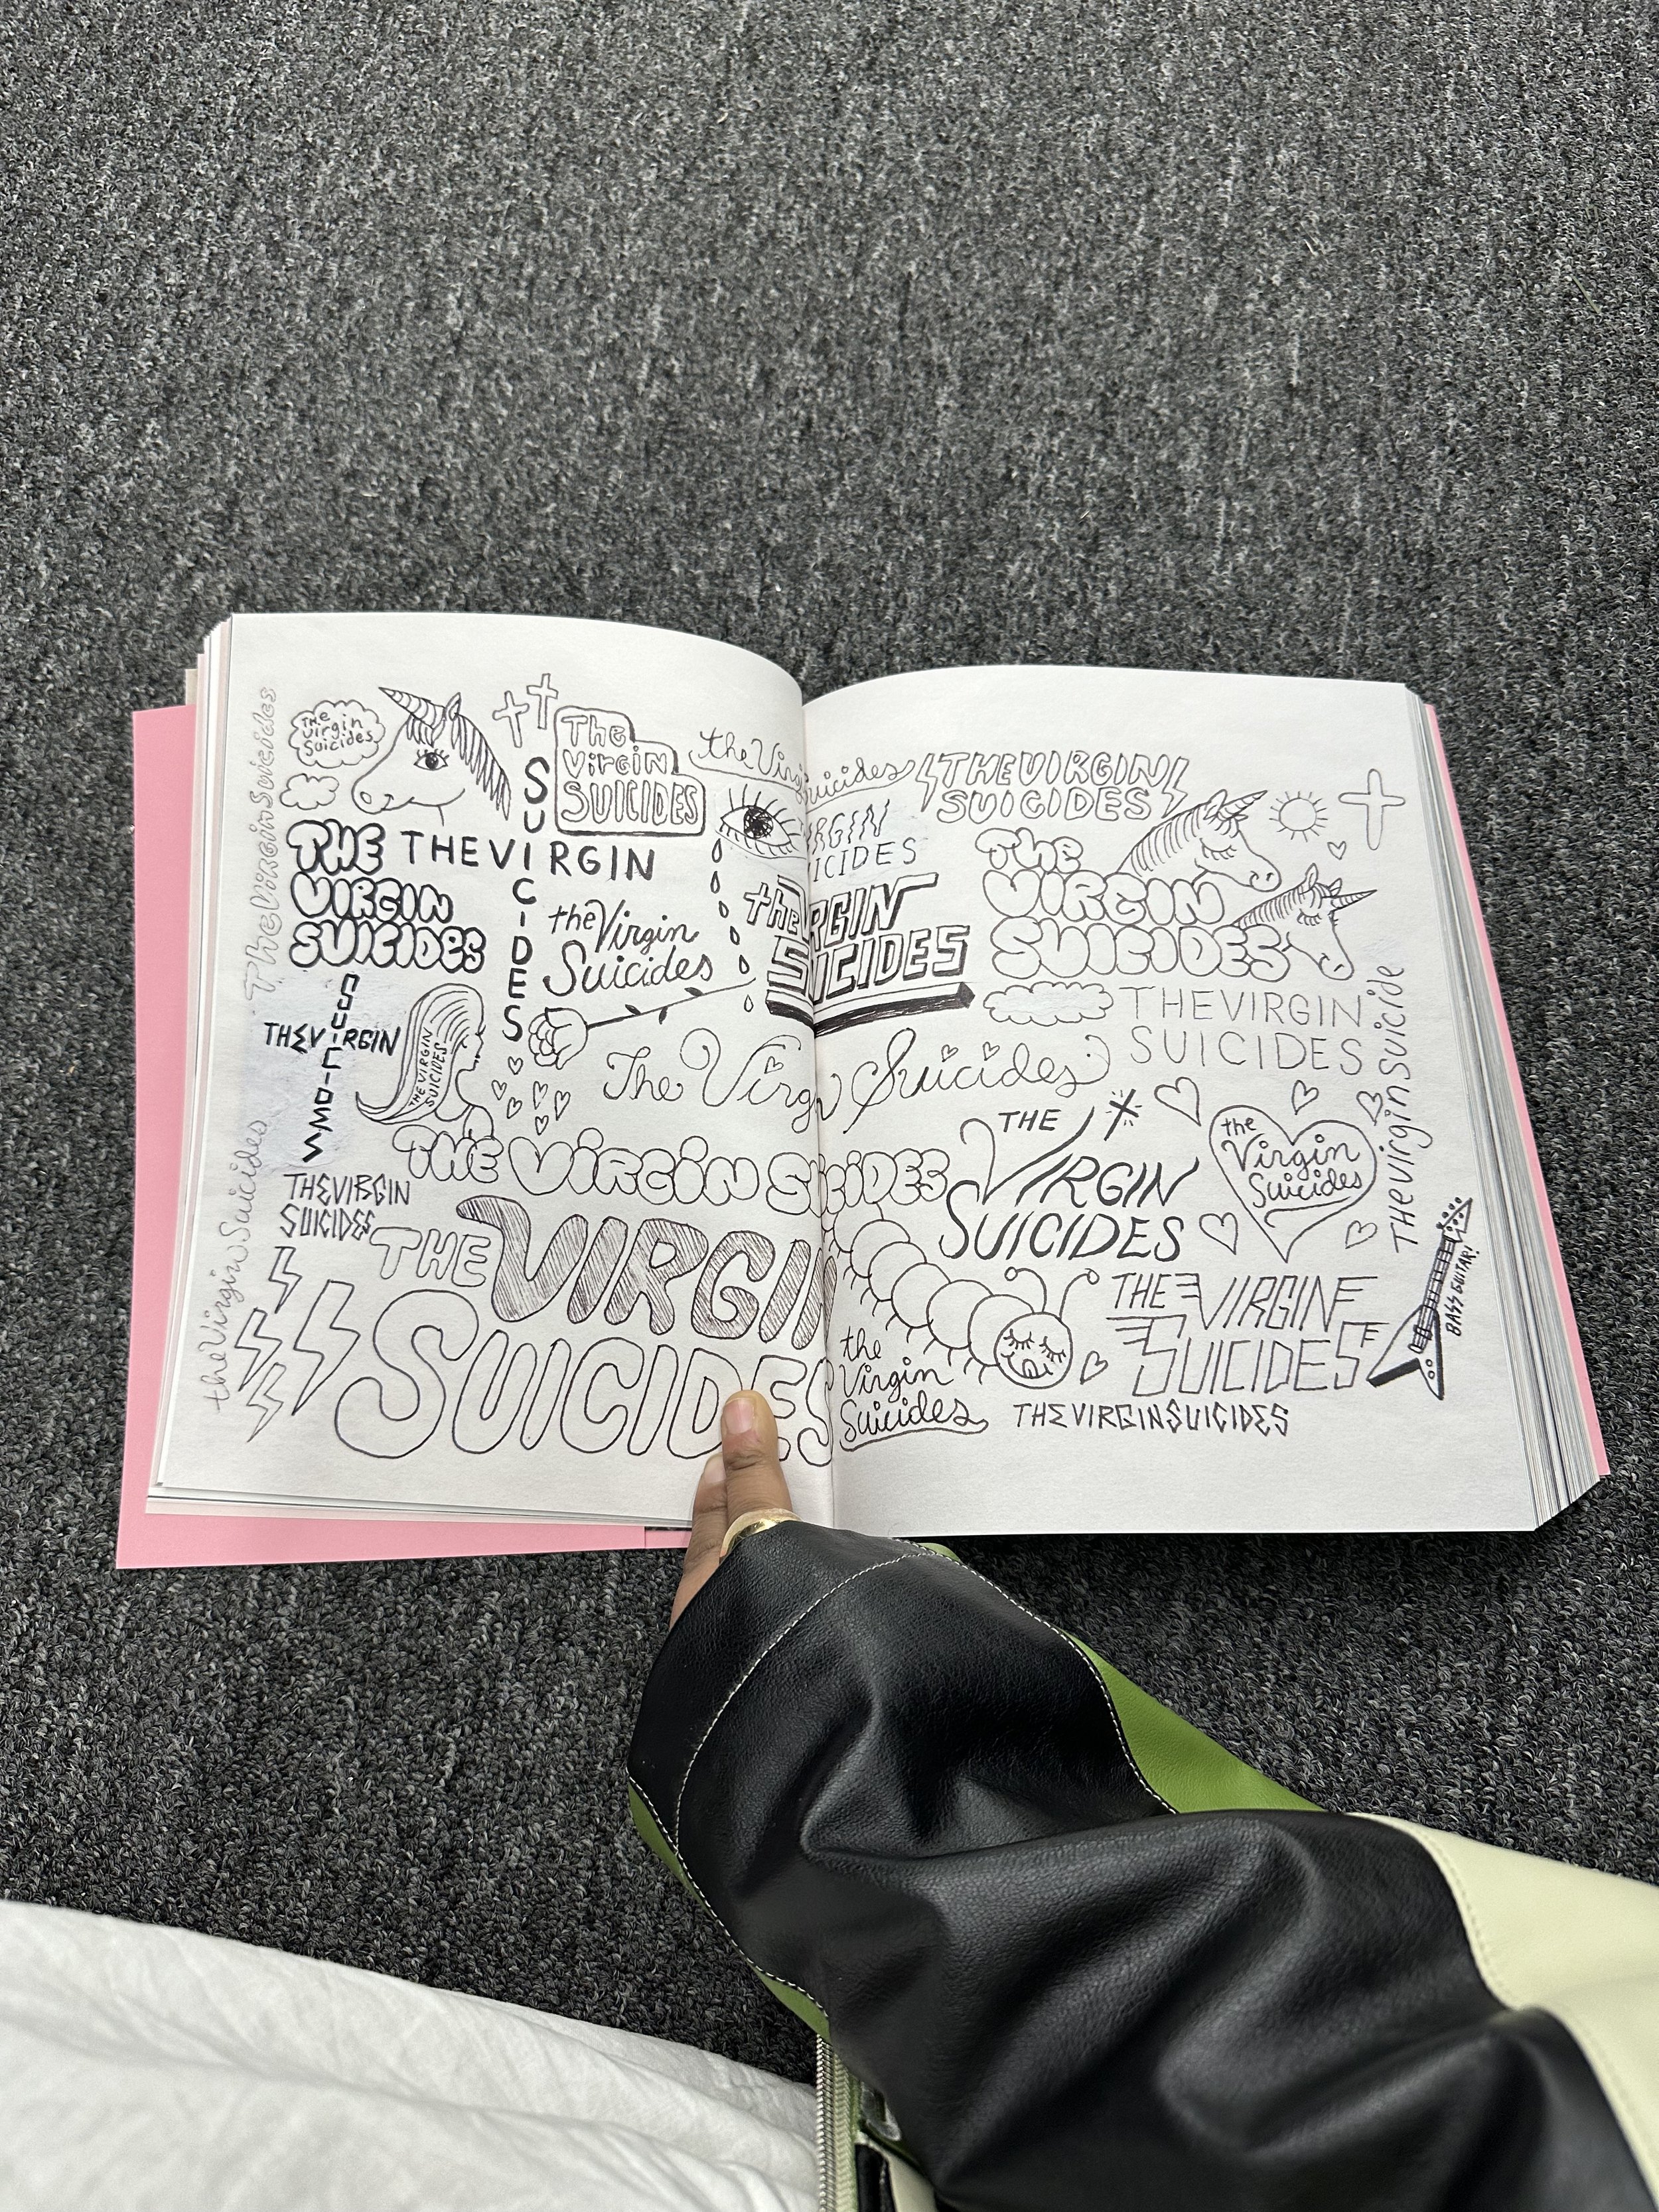 The Virgin Suicides
The
Virgin
Suicides
The
Virgin
SUICIDES
the Virgin Suicides
THE VIRGIN
SUICIDES
THE
VIRGIN
SUICIDES
THE VIRGIN
SUICIDES
the Virgin
Suicides
VIRGIN
SUICIDES
the VIRGIN
SUICIDES
The
VIRGIN
SUICIDES
THE VIRGIN
SUICIDES
THE VIRGIN
SUICIDES
THE VIRGIN
SUICIDES
The Virgin Suicides
The Virgin Suicide
THE
VIRGIN
SUICIDES
the
Virgin
Suicides
THE VIRGIN SUICIDES
the Virgin Suicides
THE VIRGIN
SUICIDES
THE VIRGIN
SUICIDES
the
Virgin
Suicides
THE VIRGIN
SUICIDES
BASS GUITAR!
THE VIRGIN SUICIDES